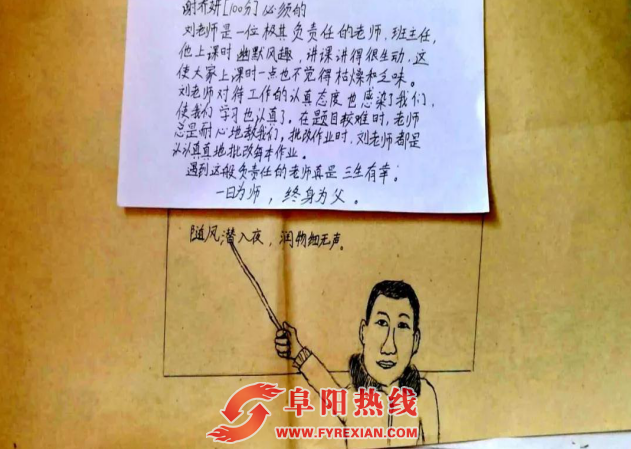 谢乔妍[100分]必须的
刘老师是一位极其负责任的老师,班主任,
他上课时幽默风趣,讲课讲得很生动,这
使大家上课时一点也不觉得枯燥和乏味。
刘老师对待工作的认真态度也感染了我们,
使我们学习也认真了。在题目较难时,老师
总是耐心地教我们。批改作业时,刘老师都是
认认真真地批改每本作业。
遇到这般负责任的老师真是三生有幸。
一日为师,终身为父。
随风潜入夜,润物细无声。
阜阳热线
WWW.FYREXIAN.COM